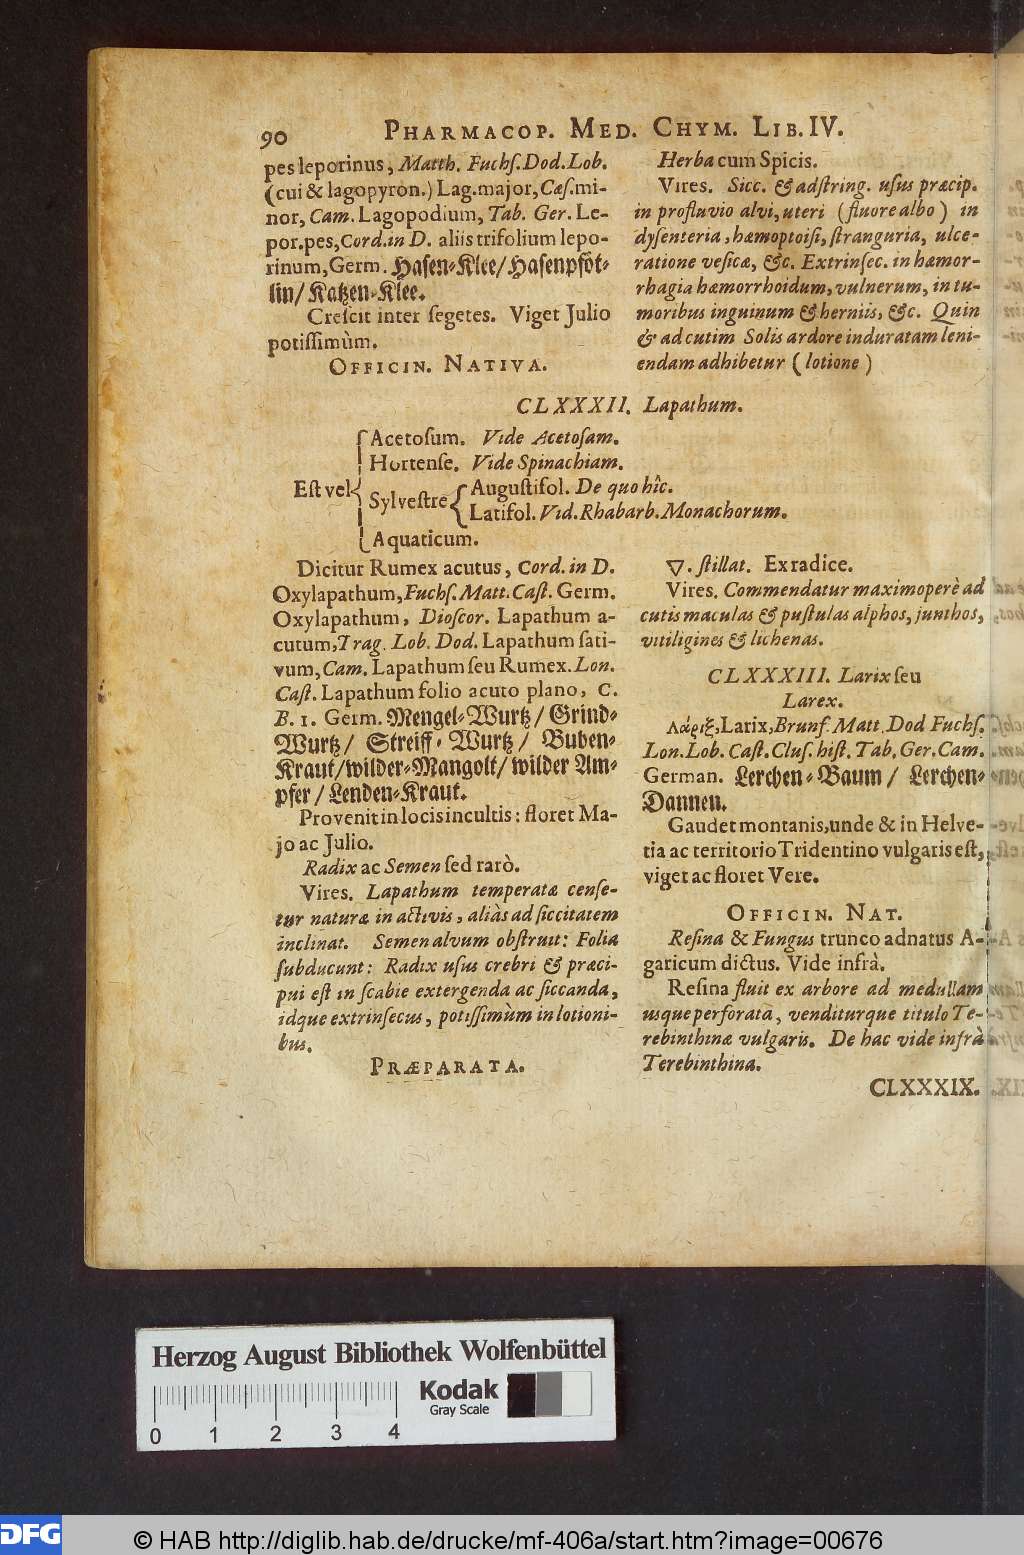 90 PHARMACOP. MED. CHYM. LIB. IV.
pes leporinus, Matth. Fuchſ. Dod. Lob.
(cui & lagopyron.) Lag. major, Cæſ. mi-
nor, Cam. Lagopodium, Tab. Ger. Le-
por. pes, Cord. in D. aliis trifolium lepo-
rinum, Germ. Haſen-Klee/ Haſenpföt-
lin/ Katzen-Klee.
Creſcit inter ſegetes. Viget Julio
potiſſimùm.
OFFICIN. NATIVA.
Herba cum Spicis.
Vires. Sicc. & adſtring. uſus præcip.
in profluvio alvi, uteri (fluore albo) in
dyſenteria, hæmoptoiſi, ſtranguria, ulce-
ratione veſicæ, &c. Extrinſec. in hæmor-
rhagia hæmorrhoidum, vulnerum, in tu-
moribus inguinum & herniis, &c. Quin
& ad cutim Solis ardore induratam leni-
endam adhibetur (lotione)
CLXXXII. Lapathum.
Acetoſum. Vide Acetoſam.
Hortenſe. Vide Spinachiam.
Eſt vel
Sylveſtre
Auguſtifol. De quo hîc.
Latifol. Vid. Rhabarb. Monachorum.
Aquaticum.
Dicitur Rumex acutus, Cord. in D.
Oxylapathum, Fuchſ. Matt. Caſt. Germ.
Oxylapathum, Dioſcor. Lapathum a-
cutum, Trag. Lob. Dod. Lapathum ſati-
vum, Cam. Lapathum ſeu Rumex. Lon.
Caſt. Lapathum folio acuto plano, C.
B. 1. Germ. Mengel-Wurtz/ Grind-
Wurtz/ Streiff-Wurtz/ Buben-
Kraut/ wilder-Mangolt/ wilder Am-
pfer/ Lenden-Kraut.
Provenit in locis incultis: floret Ma-
jo ac Julio.
Radix ac Semen ſed rarò.
Vires. Lapathum temperatæ cenſe-
tur naturæ in activis, aliàs ad ſiccitatem
inclinat. Semen alvum obſtruit: Folia
ſubducunt: Radix uſus crebri & præci-
pui eſt in ſcabie extergenda ac ſiccanda,
idque extrinſecus, potiſſimùm in lotioni-
bus.
PRÆPARATA.
▽. ſtillat. Ex radice.
Vires. Commendatur maximoperè ad
cutis maculas & puſtulas alphos, junthos,
vitiligines & lichenas.
CLXXXIII. Larix ſeu
Larex.
Λάριξ, Larix, Brunf. Matt. Dod Fuchſ.
Lon. Lob. Caſt. Cluſ. hiſt. Tab. Ger. Cam.
German. Lerchen-Baum/ Lerchen-
Dannen.
Gaudet montanis, unde & in Helve-
tia ac territorio Tridentino vulgaris eſt,
viget ac floret Vere.
OFFICIN. NAT.
Reſina & Fungus trunco adnatus A-
garicum dictus. Vide infrà.
Reſina fluit ex arbore ad medullam
usque perforatâ, venditurque titulo Te-
rebinthinæ vulgaris. De hac vide infrà
Terebinthina.
CLXXXIX.
Herzog August Bibliothek Wolfenbüttel
Kodak
Gray Scale
0 1 2 3 4
DFG
© HAB http://diglib.hab.de/drucke/mf-406a/start.htm?image=00676